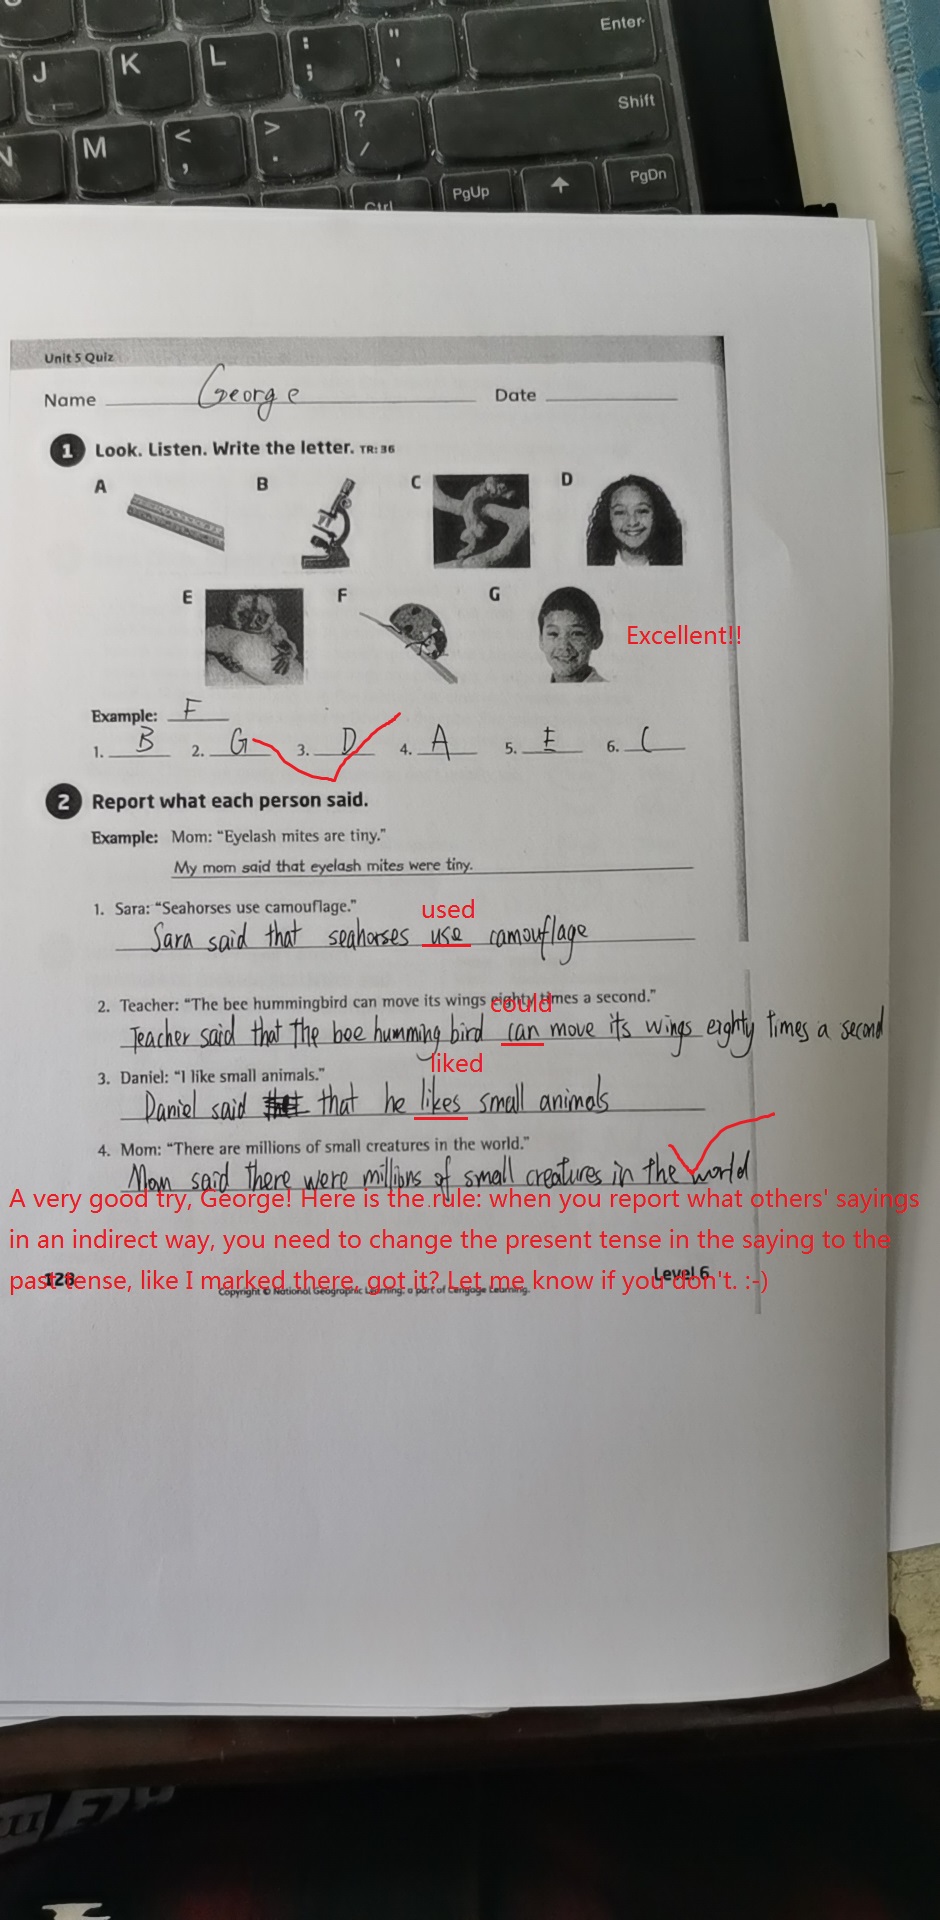 Enter
J K L : ; " '
Shift
N M < , > . ? /
PgUp PgDn
Ctrl
Unit 5 Quiz
Name George Date
1 Look. Listen. Write the letter. TR: 36
A B C D
E F G
Excellent!!
Example: F
1. B 2. G 3. D 4. A 5. E 6. C
2 Report what each person said.
Example: Mom: “Eyelash mites are tiny.”
My mom said that eyelash mites were tiny.
1. Sara: “Seahorses use camouflage.”
used
Sara said that seahorses use camouflage
2. Teacher: “The bee hummingbird can move its wings eighty times a second.”
could
Teacher said that the bee humming bird can move its wings eighty times a second
liked
3. Daniel: “I like small animals.”
Daniel said that he likes small animals
4. Mom: “There are millions of small creatures in the world.”
Mom said there were millions of small creatures in the world
A very good try, George! Here is the rule: when you report what others' sayings
in an indirect way, you need to change the present tense in the saying to the
past tense, like I marked there, got it? Let me know if you don't. :-)
128 Level 6
Copyright © National Geographic Learning, a part of Cengage Learning.